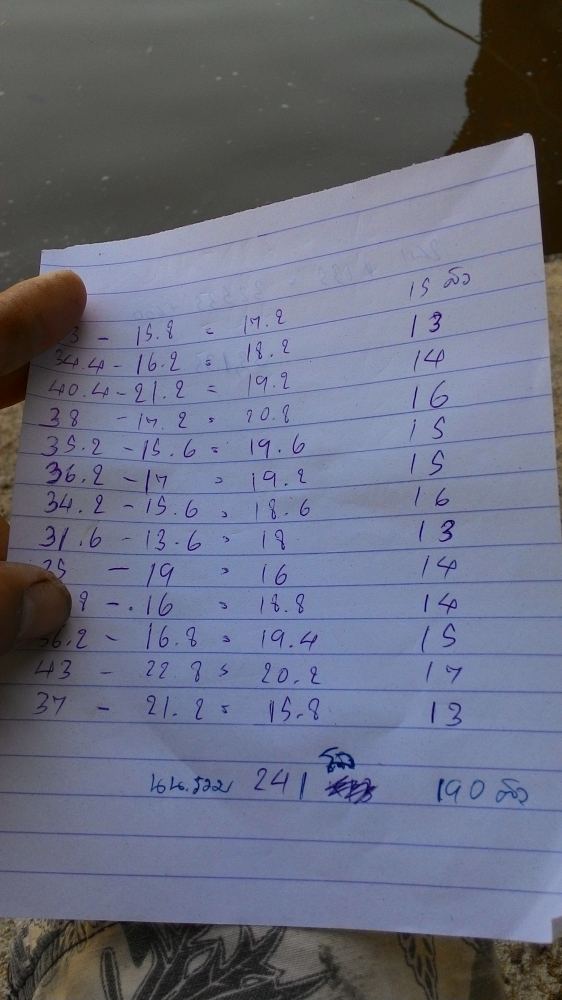 3 - 15.8 = 17.2 15 ตัว
34.4 - 16.2 = 18.2 13
40.4 - 21.2 = 19.2 14
38 - 17.2 = 20.8 16
35.2 - 15.6 = 19.6 15
36.2 - 17 = 19.2 15
34.2 - 15.6 = 18.6 16
31.6 - 13.6 = 18 13
35 - 19 = 16 14
8 - 16 = 18.8 14
36.2 - 16.8 = 19.4 15
43 - 22.8 = 20.2 17
37 - 21.2 = 15.8 13
นน.รวม 241 190 ตัว